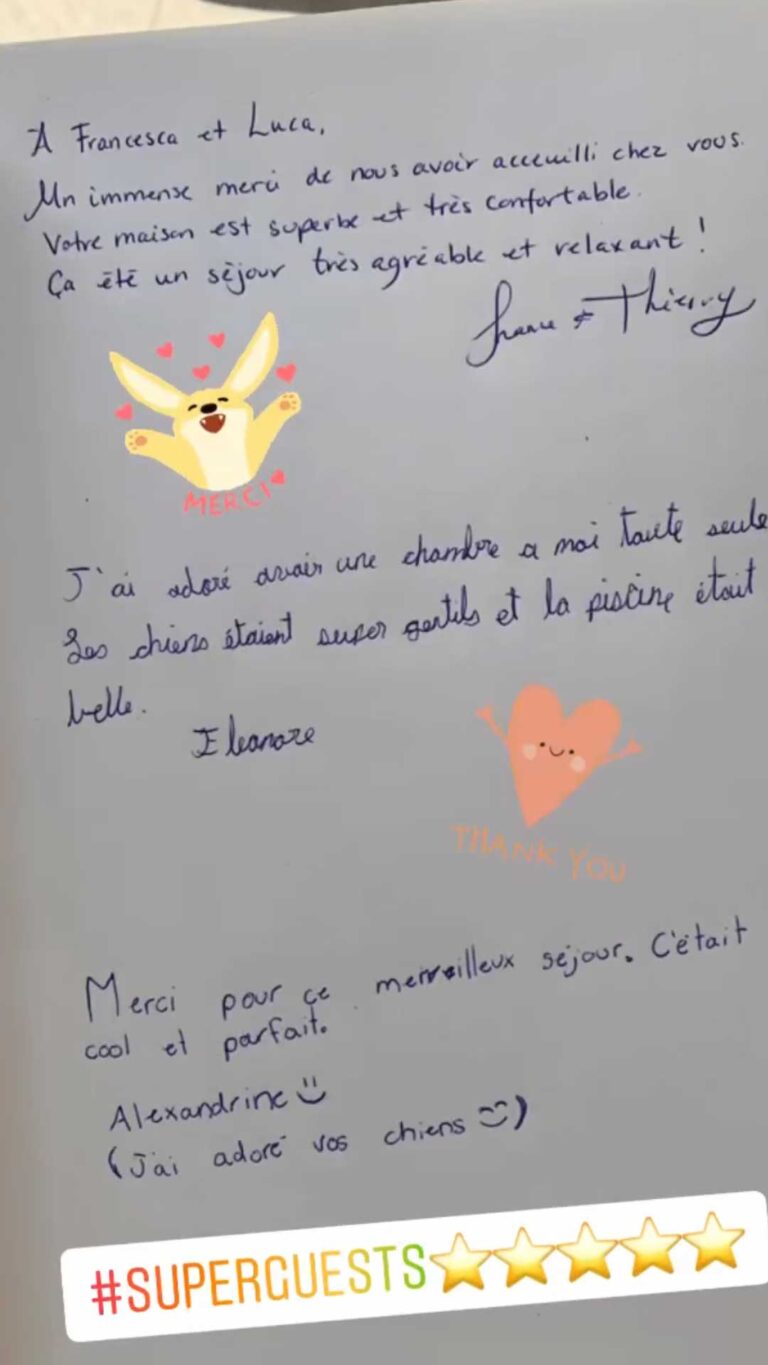 A Francesca et Luca,
Un immense merci de nous avoir acceuilli chez vous.
Votre maison est superbe et très confortable.
Ça été un séjour très agréable et relaxant !
& Thierry
MERCI
J'ai adoré avoir une chambre a moi toute seule
Les chiens étaient super gentils et la piscine était
belle.
Eleanore
THANK YOU
Merci pour ce merveilleux séjour. C'était
cool et parfait.
Alexandrine
(J'ai adoré vos chiens )
#SUPERGUESTS⭐⭐⭐⭐⭐